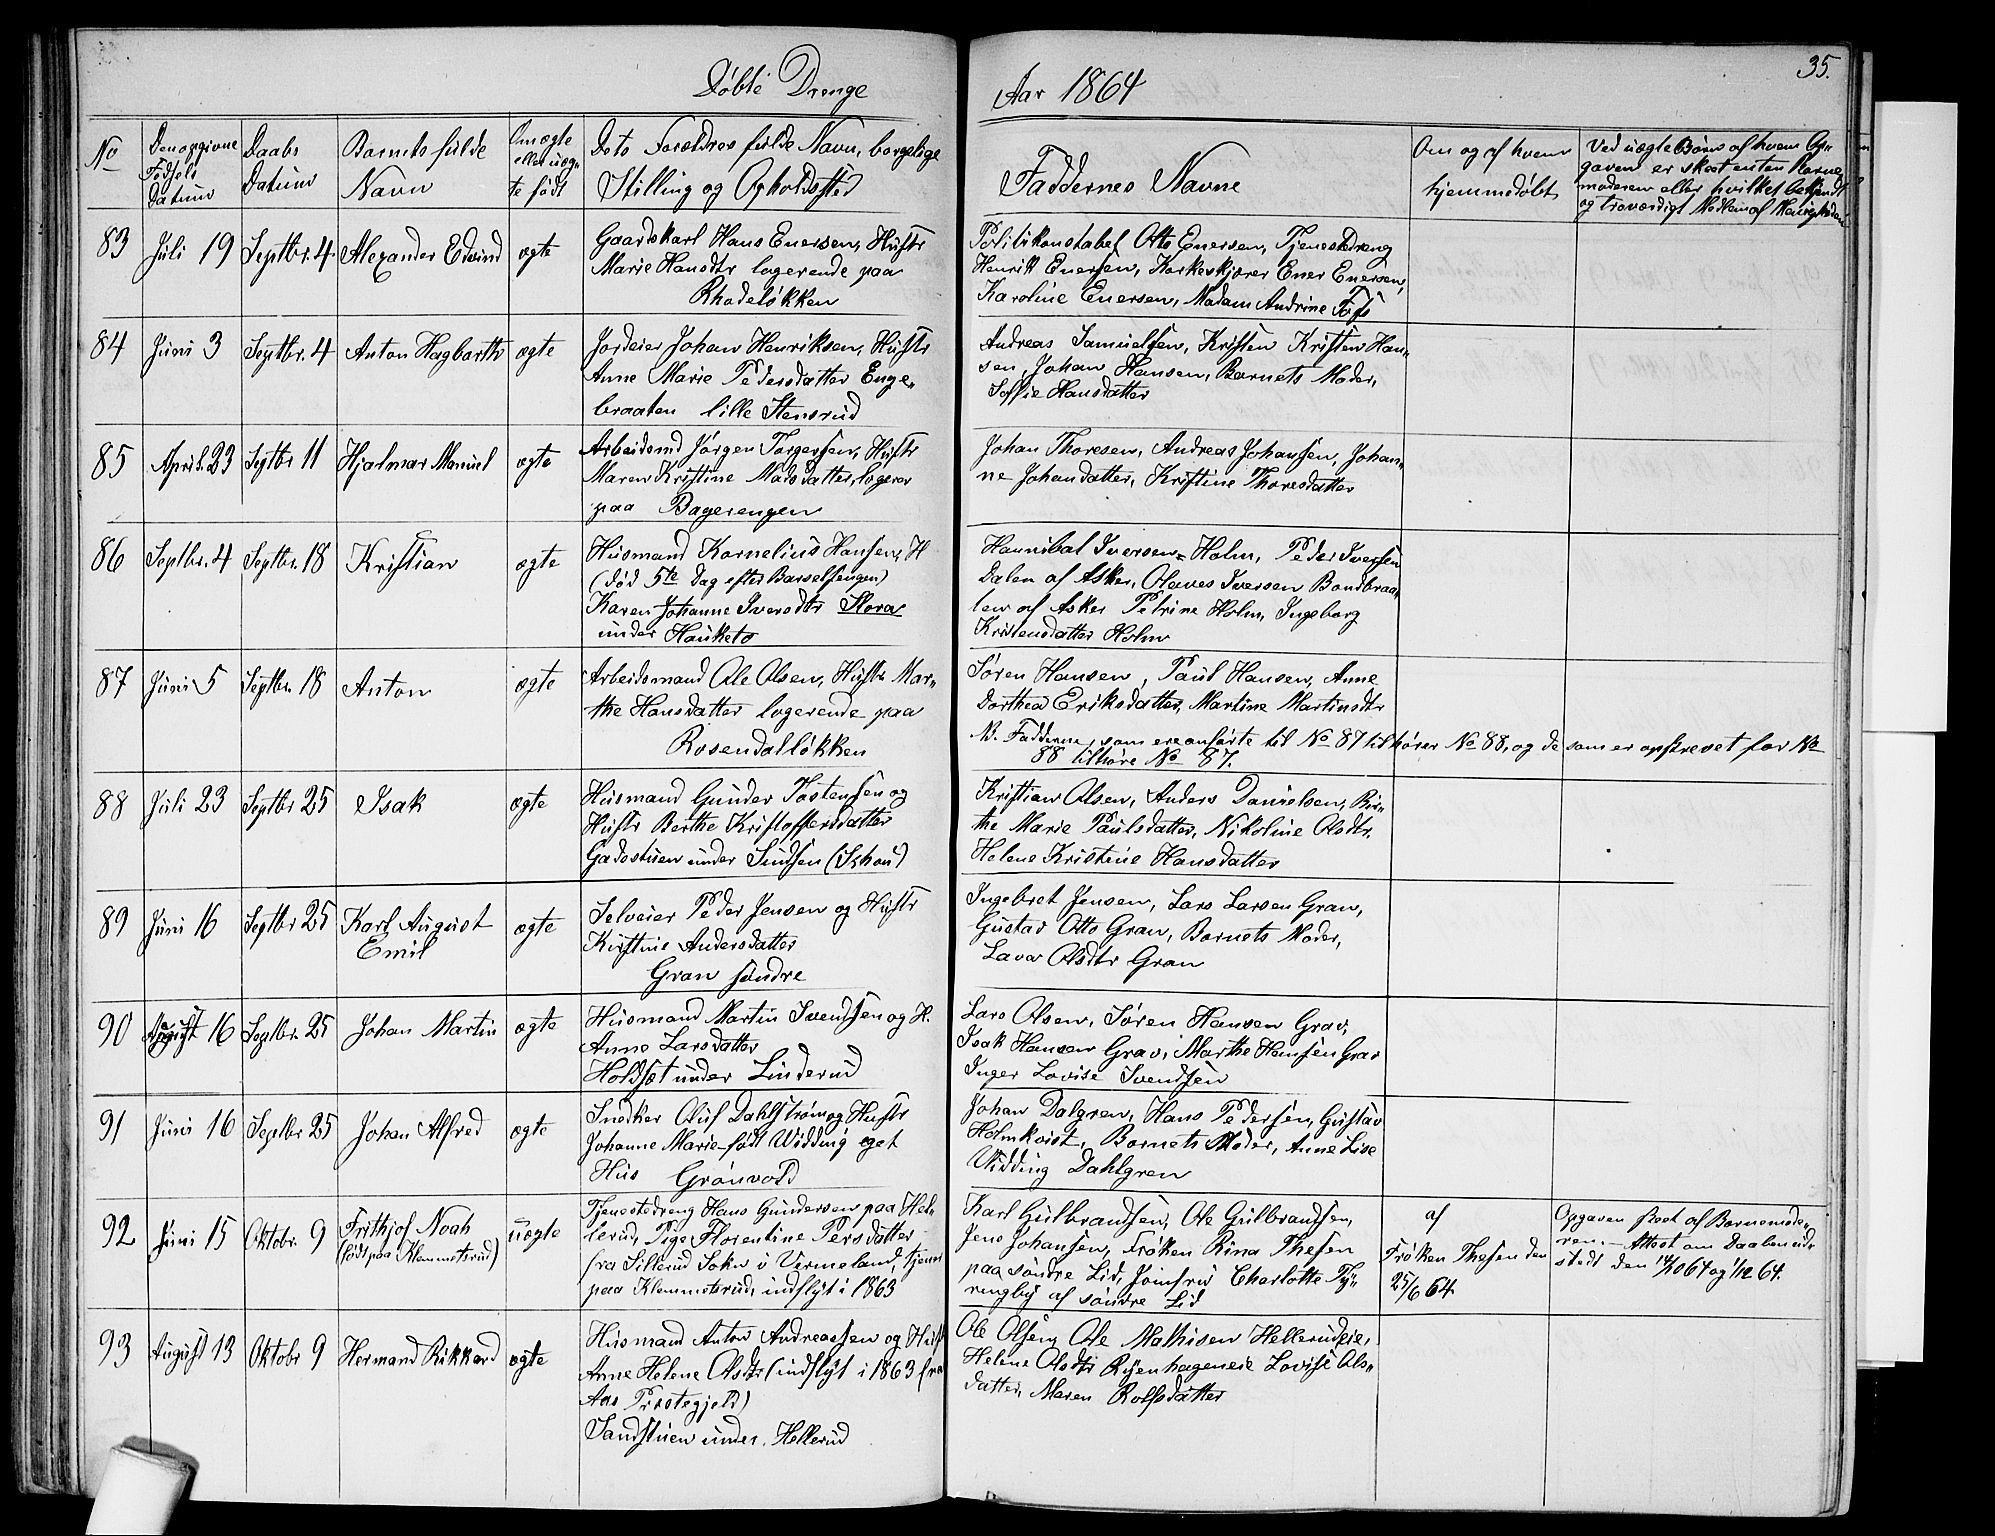 35.
Døbte Drenge
Aar 1864
No
Den opgivne
Fødsels
Datum
Daabs
Datum
Barnets fulde
Navn
Om ægte
eller uæg-
te født
Dets Forældres fulde Navn, borgelige
Stilling og Opholdssted
Faddernes Navne
Om og af hvem
hjemmedøbt
Ved uægte Børn af hvem Op-
gaven er skeet enten Barne
moderen eller hvilket bekjendt
og troværdigt Medlem af Menigheden
83 Juli 19 Septbr. 4 Alexander Edvind ægte
Gaardskarl Hans Enersen, Hustr
Marie Hansdtr logerende paa
Rhodeløkken
Politikonstabel Otto Enersen, Tjenestedreng
Henrik Enersen, Korkeskjærer Ener Enersen,
Karoline Enersen, Madam Andrine Foss
84 Juni 3 Septbr. 4 Anton Hagbarth ægte
Jordeier Johan Henriksen, Hustr
Anne Marie Pedersdatter Enge-
braaten lille Stensrud
Andreas Samuelsen, Kristen Kristen Han-
sen, Johan Hansen, Barnets Moder,
Soffie Hansdatter
85 April 23 Septbr 11 Hjalmar Manuel ægte
Arbeidsmd Jørgen Torgersen, Hustr
Maren Kristine Madsdatter, logerer
paa Bagerengen
Johan Thoresen, Andreas Johansen, Johan-
ne Johansdatter, Kristine Thoresdatter
86 Septbr. 4 Septbr. 18 Kristian ægte
Husmand Kornelius Hansen, H
(død 5te Dag efter Barselsengen)
Karen Johanne Iversdtr Flora
under Hauketo
Hannibal Iversen Holm, Peder Iversen
Dalen af Asker, Olaves Iversen Bondbraa-
ten af Asker Petrine Holm, Ingeborg
Kristensdatter Holm
87 Juni 5 Septbr. 18 Anton ægte
Arbeidsmand Ole Olsen, Hustr Mar-
the Hansdatter logerende paa
Rosendalløkken
Søren Hansen, Paul Hansen, Anne
Dorthea Eriksdatter, Martine Martinsdtr
N. Fadderne, som ere anførte til No 87 tilhører No 88, og de som er opskrevet for No
88 tilhøre No 87.
88 Juli 23 Septbr 25 Isak ægte
Husmand Gunder Tostensen og
Hustr Berthe Kristoffersdatter
Gadestuen under Sindsen (Schou)
Kristian Olsen, Anders Danielsen, Bir-
the Marie Paulsdatter, Nikoline Olsdtr.
Helene Kristine Hansdatter
89 Juni 16 Septbr 25 Karl August
Emil ægte
Selveier Peder Jensen og Hustr
Kirstine Andersdatter
Gran søndre
Ingebret Jensen, Lars Larsen Gran,
Gustav Otto Gran, Barnets Moder,
Lava Olsdtr Gran
90 August 16 Septbr. 25 Johan Martin ægte
Husmand Martin Svendsen og H.
Anne Larsdatter
Holdset under Linderud
Lars Olsen, Søren Hansen Grav,
Isak Hansen Grav, Marthe Hansen Grav
Inger Lovise Svendsen
91 Juni 16 Septbr 25 Johan Alfred ægte
Snedker Oluf Dahlstrøm og Hustr
Johanne Marie født Widding eget
Hus Grønvold
Johan Dalgren, Hans Pedersen, Gustav
Holmkvist, Barnets Moder, Anne Lise
Widding Dahlgren
92 Juni 15 Oktobr. 9 Frithjof Noah
(født paa Klemmetsrud) uægte
Tjenestedreng Hans Gundersen paa Hel-
lerud, Pige Florentine Persdatter
fra Sillerud Sokn i Vermeland, tjener
paa Klemmetsrud, indflyt i 1863
Karl Gulbrandsen, Ole Gulbrandsen,
Jens Johansen, Frøken Rina Thesen
paa søndre Lid, Jomfru Charlotte Ty-
ringby af søndre Lid
af
Frøken Thesen den
25/6 64
Opgaven skeet af Barnemode-
ren. - Attest om Daaben ud-
stedt den 14/10 64 og 1/12 64.
93 August 13 Oktobr 9 Hermand Rikkard ægte
Husmand Anton Andreassen og Hust
Anne Helene Olsdtr (indflyt i 1863 fra
Aas Præstegjeld)
Sandstuen under Hellerud
Ole Olsen, Ole Mathisen Hellerudeie,
Helene Olsdtr Ryenhageneie Lovise Ols-
datter, Maren Rolfsdatter